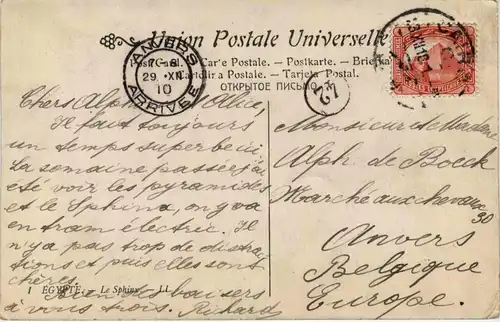 Union Postale Universelle
Post Card. — Car'e Postale. — Postkarte. — Briefka
Cartolir a Postale. — Tarjeta Postal.
ОТКРЫТОЕ ПИСЬМО
ANVERS
7-8
29 XII
10
ARRIVÉE
Chers Alph. & Alice,
Il fait toujours
un temps superbe ici
La semaine passée j'ai
été voir les pyramides
et le Sphinx, on y va
en tram électric. Il
n'y a pas trop de distrac
tions et puis elles sont
chères.
1 EGYPTE. Le Sphinx LL.
Bien des baisers
à vous trois. Rikard
Monsieur & Madame
Alph. de Boeck
Marché aux chevaux
30
Anvers
Belgique
Europe.